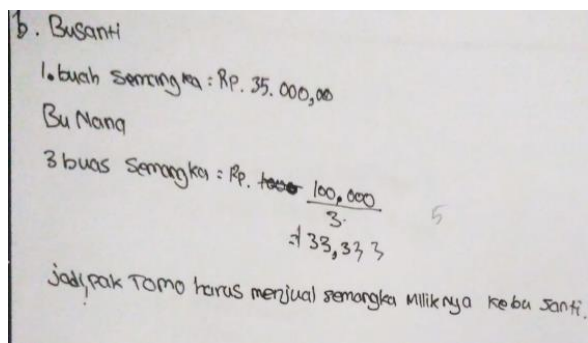 b. Busanti
1. buah semangka : Rp. 35.000,00
Bu Nana
3 buas semangka : Rp. 100,000
3.
= 33,333
5
jadi, pak Tomo harus menjual semangka miliknya kebu santi.